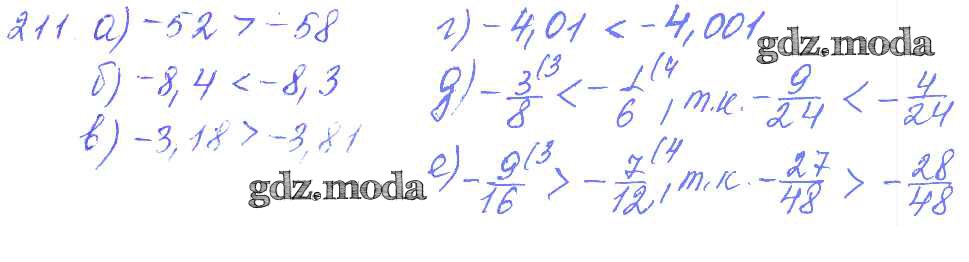 211. а) -52 > -58
б) -8,4 < -8,3
в) -3,18 > -3,81
gdz.moda
г) -4,01 < -4,001
gdz.moda
д) -3/8 (3 < -1/6 (4, т.к. -9/24 < -4/24
е) -9/16 (3 > -7/12 (4, т.к. -27/48 > -28/48